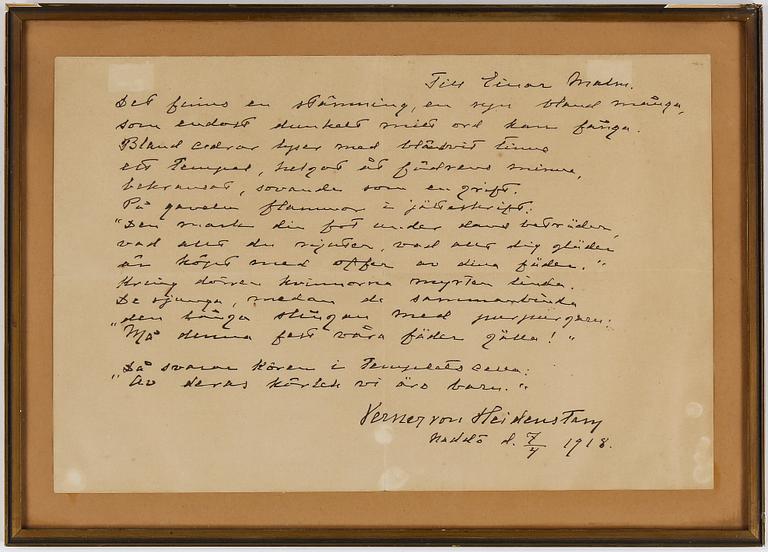 Till Einar Malm.
Det finns en stämning, en syn bland många,
som endast dunkelt mitt ord kan fånga.
Bland cedrar lyser med blåsvit tinne
ett tempel, helgat åt fädrens minne,
bekransat, sovande som en grift.
På gaveln flammar i jätteskrift:
"Den mark din fot under dans beträder,
vad allt du njuter, vad allt dig gläder
är köpt med offer av dina fäder."
Kring dörren kvinnorna myrten linda.
De sjunga, medan de sammanbinda
den långa slingan med purpurgarn:
"Må denna fest våra fäder gälla!"
Då svarar kören i templets cella:
"Av deras kärlek vi äro barn."
Verner von Heidenstam
Naddö d. 7/7 1918.